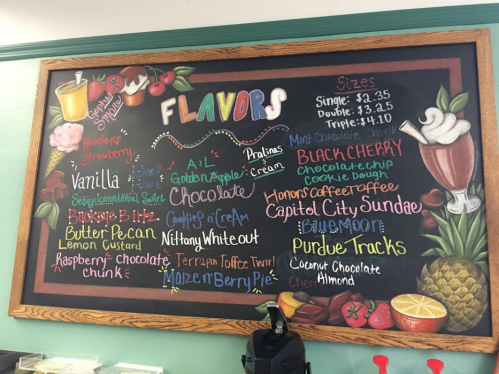 FLAVORS
Sizes
Single: $2.35
Double: $3.25
Triple: $4.10
Strawberry
Vanilla
Sesquicentennial Swirl
Buckeye Blitz
Butter Pecan
Lemon Custard
Raspberry chocolate
chunk
Golden Apple
Chocolate
Cookies n Cream
Nittany White out
Terrapin Toffee Twirl
Maize n' Berry Pie
Pralines
Cream
Mint Chocolate Chunk
BLACK CHERRY
chocolate chip
Cookie Dough
Honors Coffee Toffee
Capitol City Sundae
Blue Moon
Purdue Tracks
Coconut Chocolate
Almond